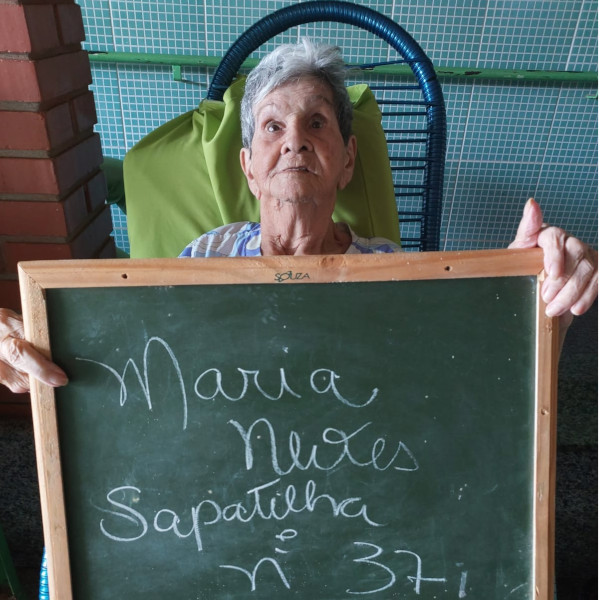 SOUZA
Maria
Neves
Sapatilha
nº 37